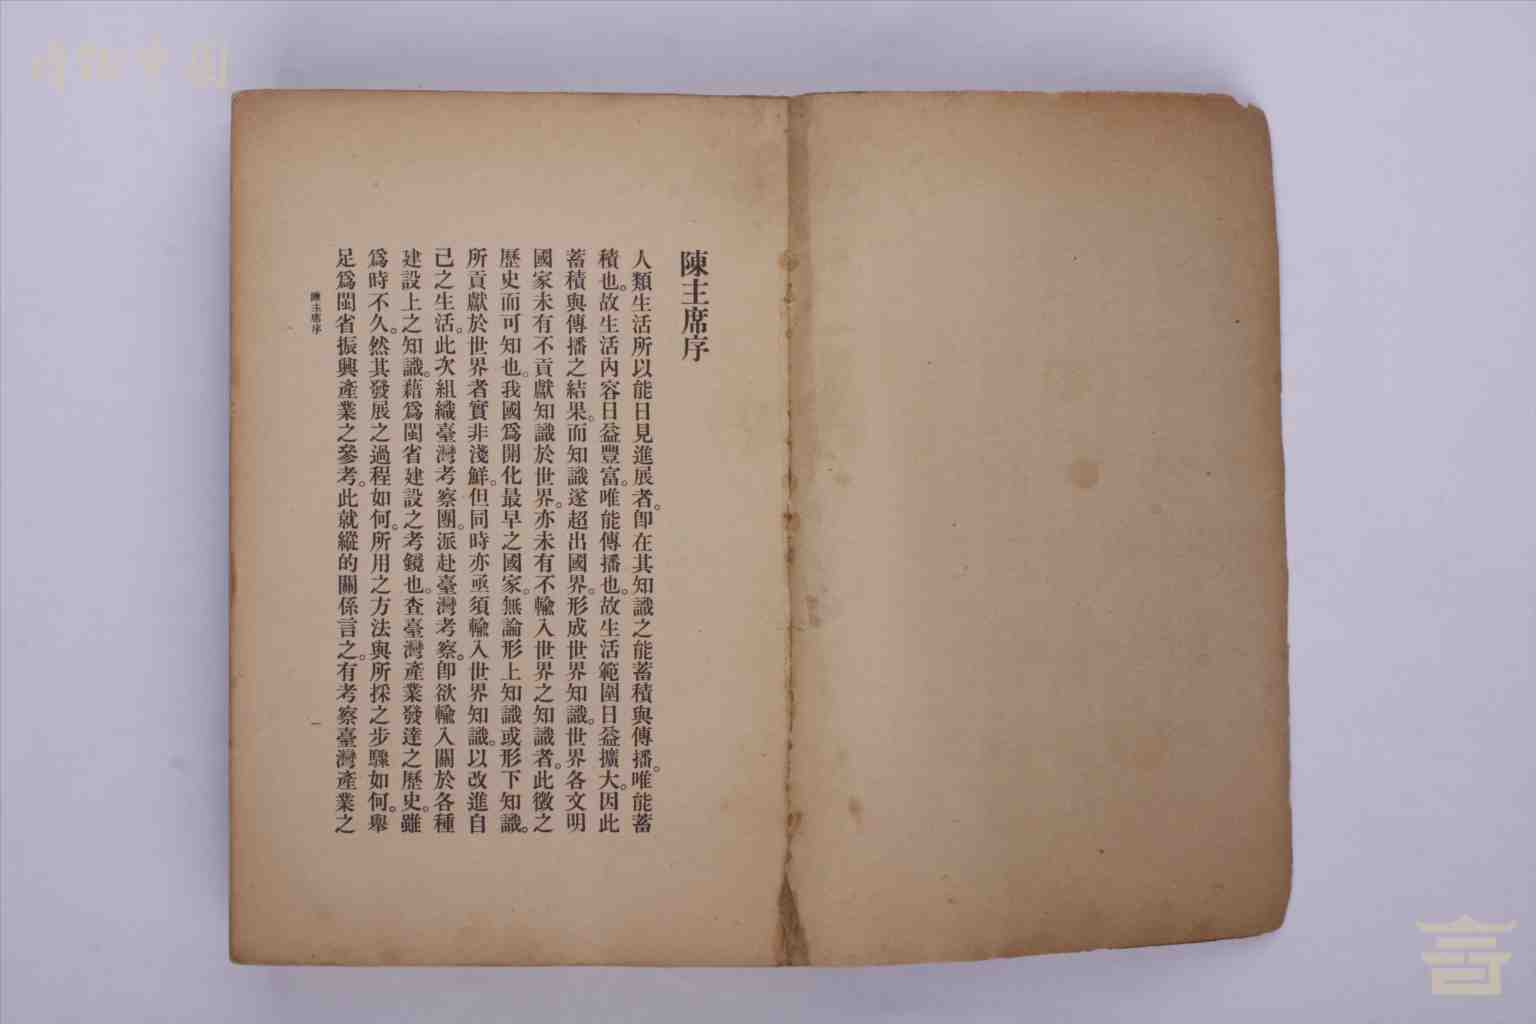 陳主席序
人類生活所以能日見進展者。卽在其知識之能蓄積與傳播。唯能蓄
積也。故生活內容日益豐富。唯能傳播也。故生活範圍日益擴大。因此
蓄積與傳播之結果。而知識遂超出國界。形成世界知識。世界各文明
國家未有不貢獻知識於世界。亦未有不輸入世界之知識者。此徵之
歷史而可知也。我國爲開化最早之國家。無論形上知識或形下知識。
所貢獻於世界者實非淺鮮。但同時亦亟須輸入世界知識。以改進自
己之生活。此次組織臺灣考察團。派赴臺灣考察。卽欲輸入關於各種
建設上之知識。藉爲閩省建設之考鏡也。查臺灣產業發達之歷史。雖
爲時不久。然其發展之過程如何。所用之方法與所採之步驟如何。舉
足爲閩省振興產業之參考。此就縱的關係言之。有考察臺灣產業之
陳主席序
一